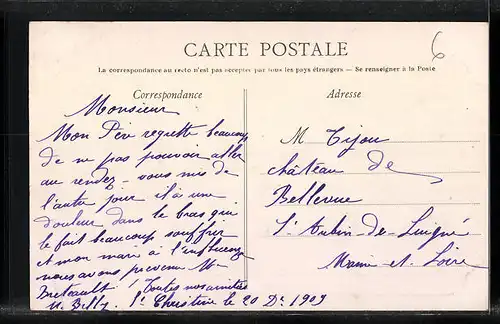 6
CARTE POSTALE
La correspondance au recto n'est pas acceptée par tous les pays étrangers — Se renseigner à la Poste
Correspondance
Monsieur
Mon Père regrette beaucoup
de ne pas pouvoir aller
au rendez-vous mis de
l'autre jour il à une
douleur dans le bras qui
le fait beaucoup souffrir
et mon mari à l'influenza
nous avons prévenu Mr
Breteault Toutes nos amitiés
St Christine le 20 De 1909
Adresse
M Tijou
château de
Bellevue
St Aubin-de-Luigné
Maine-et-Loire